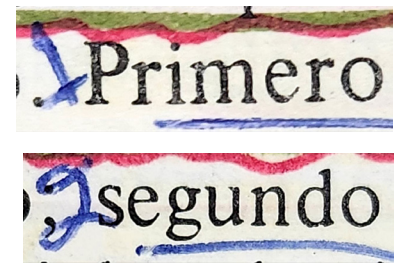 . 1 Primero
, 2 segundo